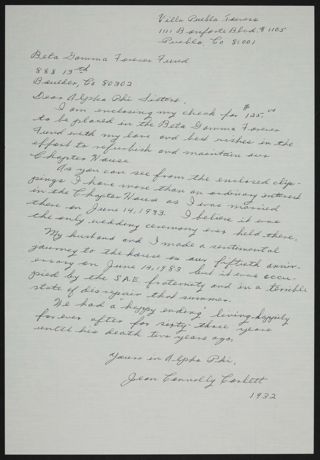 Villa Pueblo Towers
1111 Bonforte Blvd. # 1105
Pueblo, Co 81001
Beta Gamma Forever Fund
888 13th
Boulder, Co 80302
Dear Alpha Phi Sisters,
I am enclosing my check for $125.00
to be placed in the Beta Gamma Forever
Fund with my love and best wishes in the
effort to refurbish and maintain our
Chapter House.
As you can see from the enclosed clip-
pings I have more than an ordinary interest
in the Chapter House as I was married
there on June 14, 1933. I believe it was
the only wedding ceremony ever held there.
My husband and I made a sentimental
journey to the house on our fiftieth anniv-
ersary on June 14, 1983 but it was occu-
pied by the S.A.E. fraternity and in a terrible
state of disrepair that summer.
We had a happy ending living happily
forever after for sixty-three years
until his death two years ago.
Yours in Alpha Phi,
Jean Connolly Corlett
1932